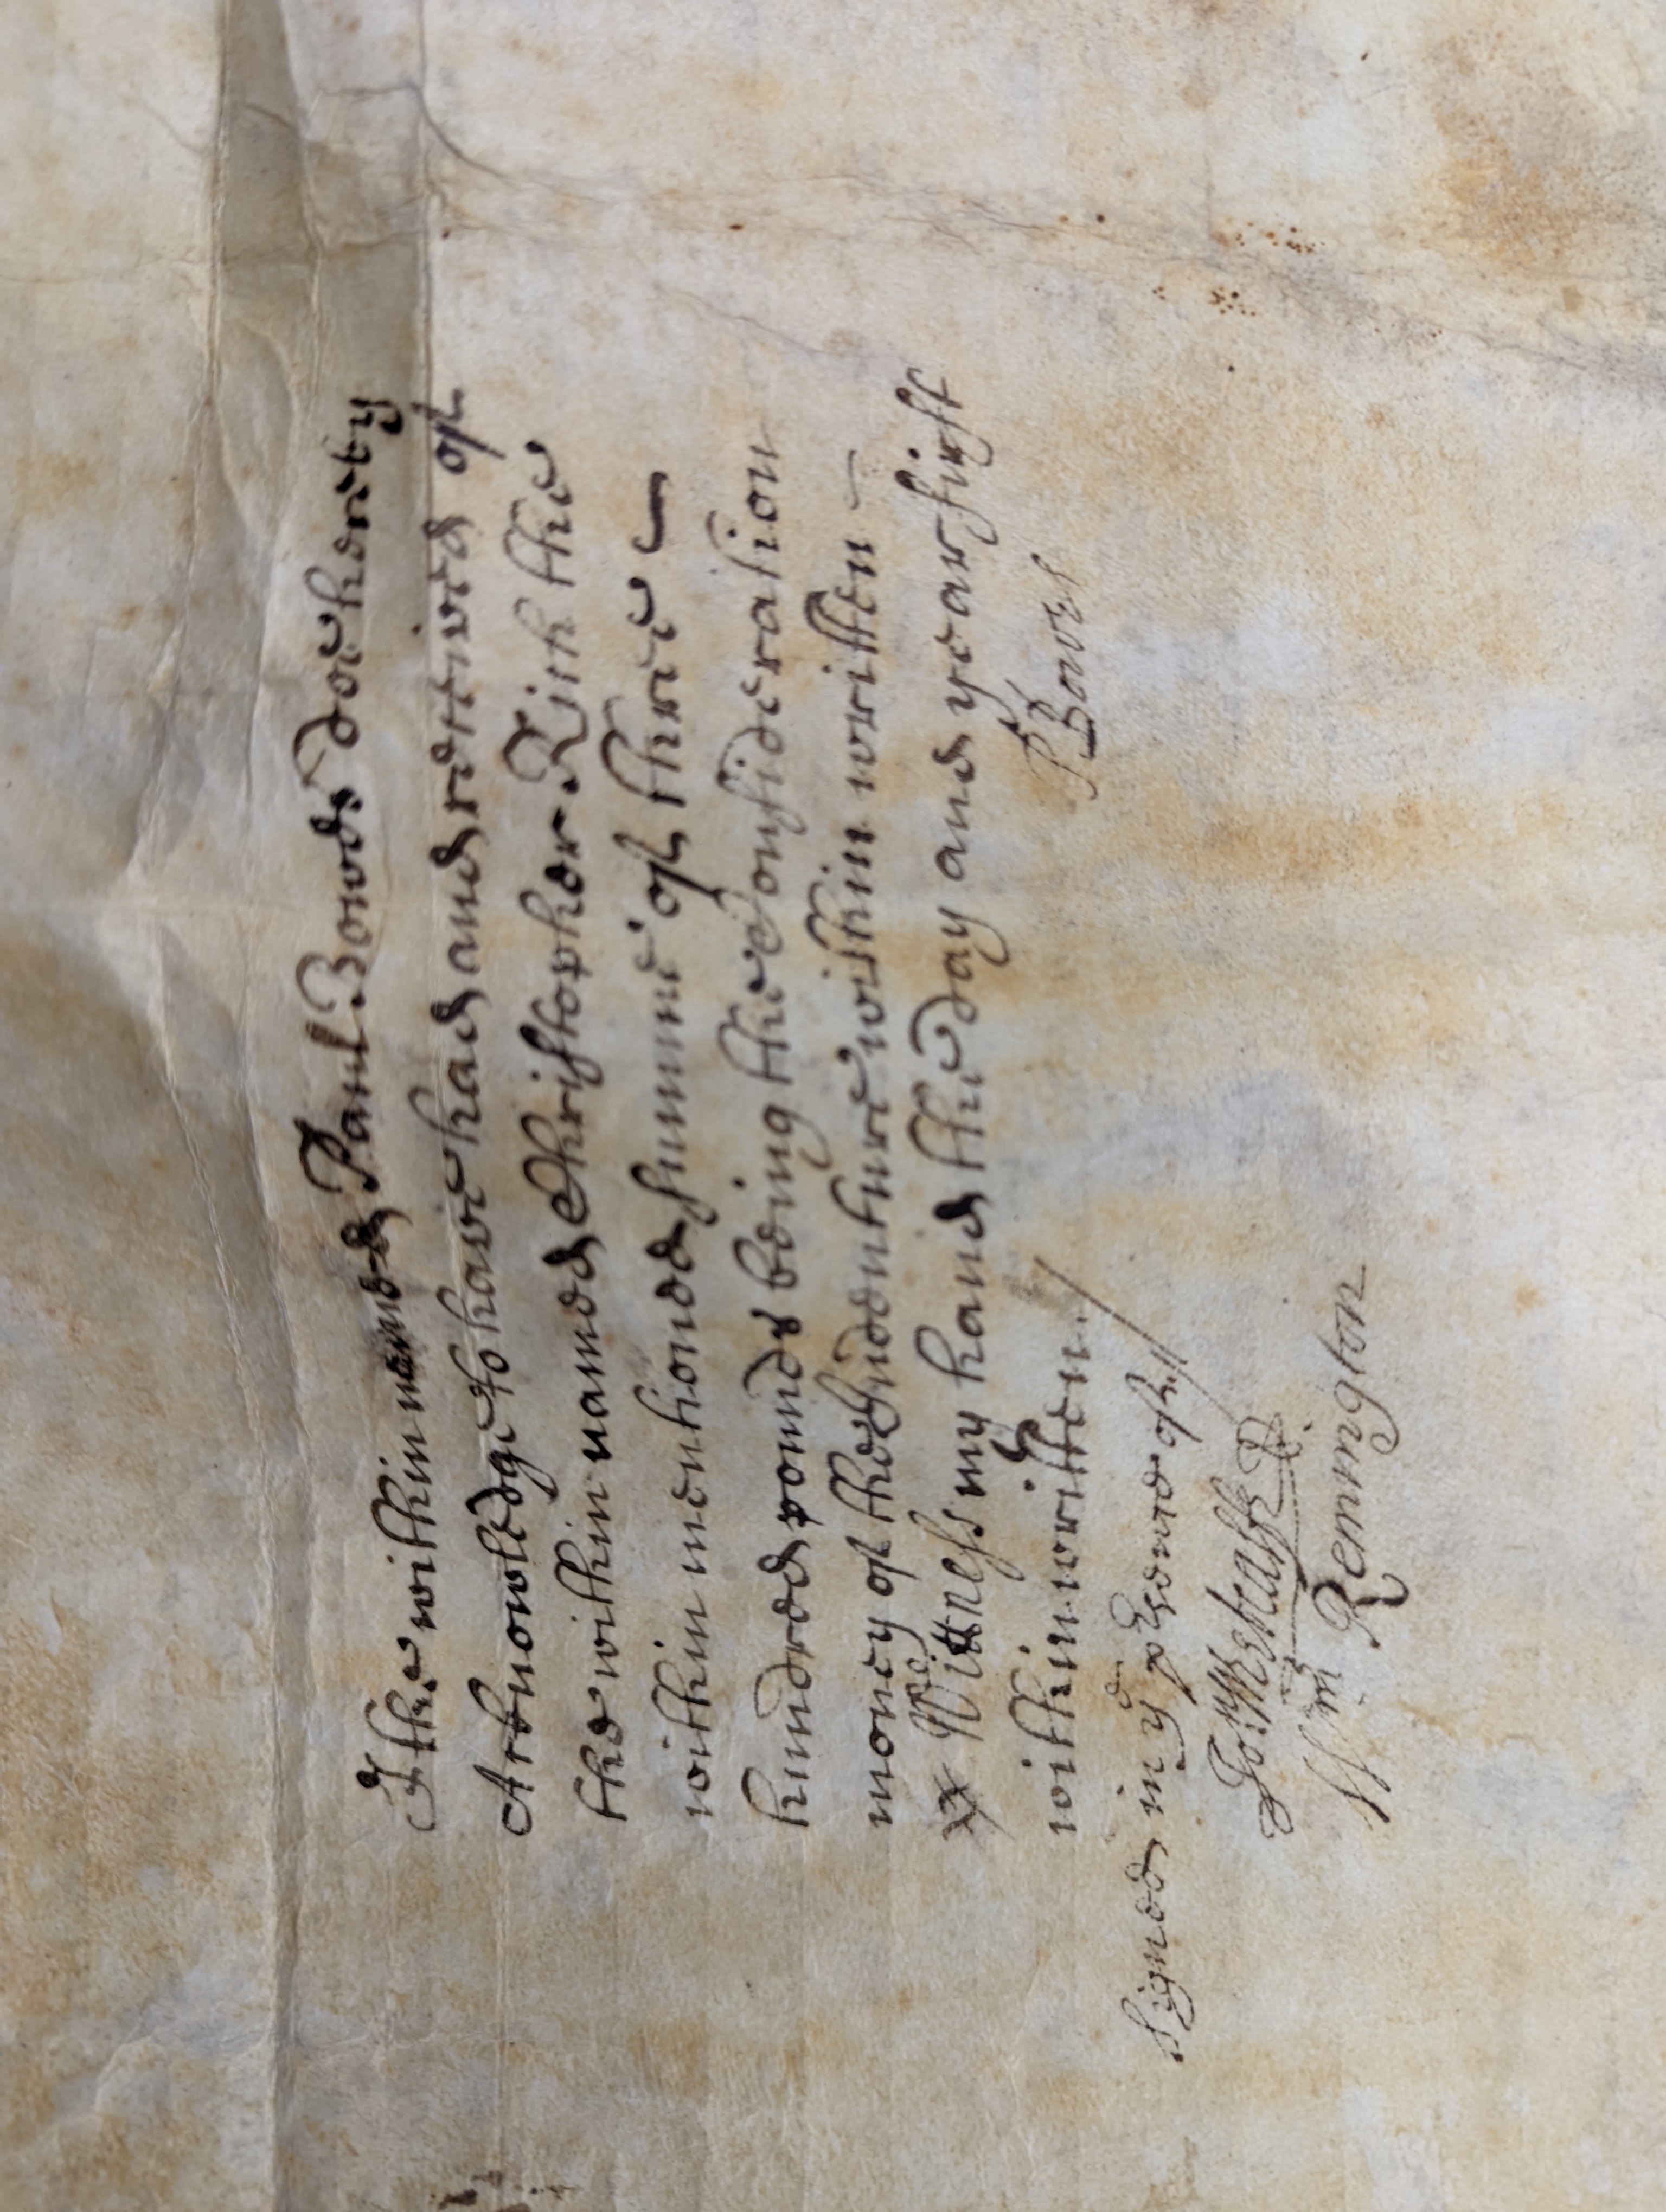 I the within named Paul Bowes doe hereby
Acknowledge to have had and received of
the within named Christopher Kirk the
within menconed summe of three
hundred pounds being the Consideration
money of the Indenture within written
Wittness my hand the day and year first
within written
P Bowes
Signed in ye psence of
Jo: Metcalfe
Wm Remington